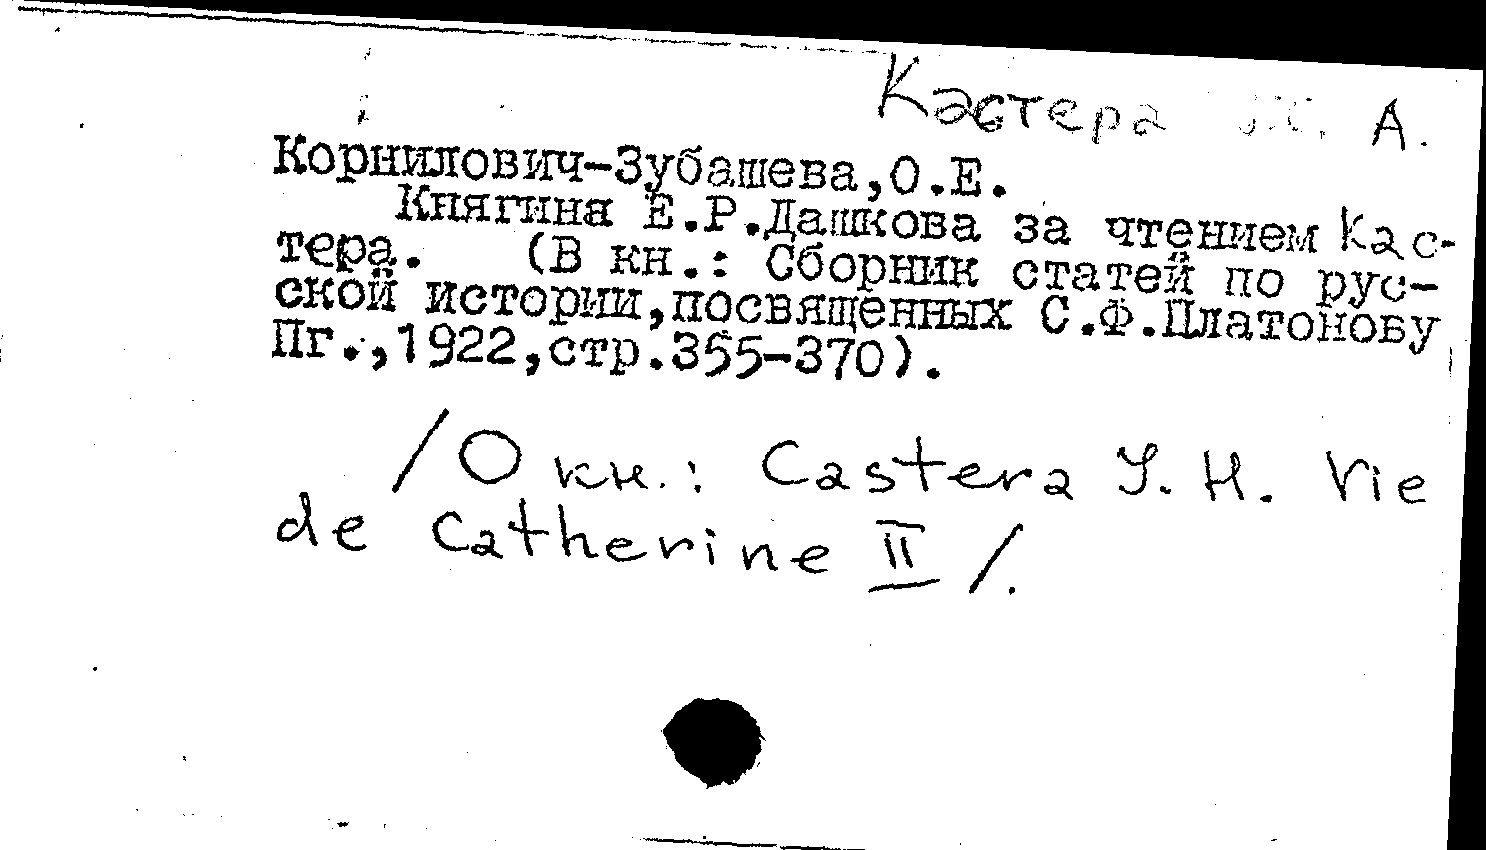 Кастера А.
Корнилович-Зубашева,О.Е.
Княгиня Е.Р.Дашкова за чтением Кас-
тера. (В кн.: Сборник статей по рус-
ской истории,посвященных С.Ф.Платонову
Пг.,1922,стр.355-370).
/О кн.: Castera J. H. Vie
de Catherine II /.